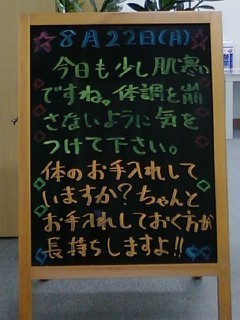 8月22日(月)
今日も少し肌寒い
ですね。体調を崩
さないように気を
つけて下さい。
体のお手入れして
いますか?ちゃんと
お手入れしておく方が
長持ちしますよ!!